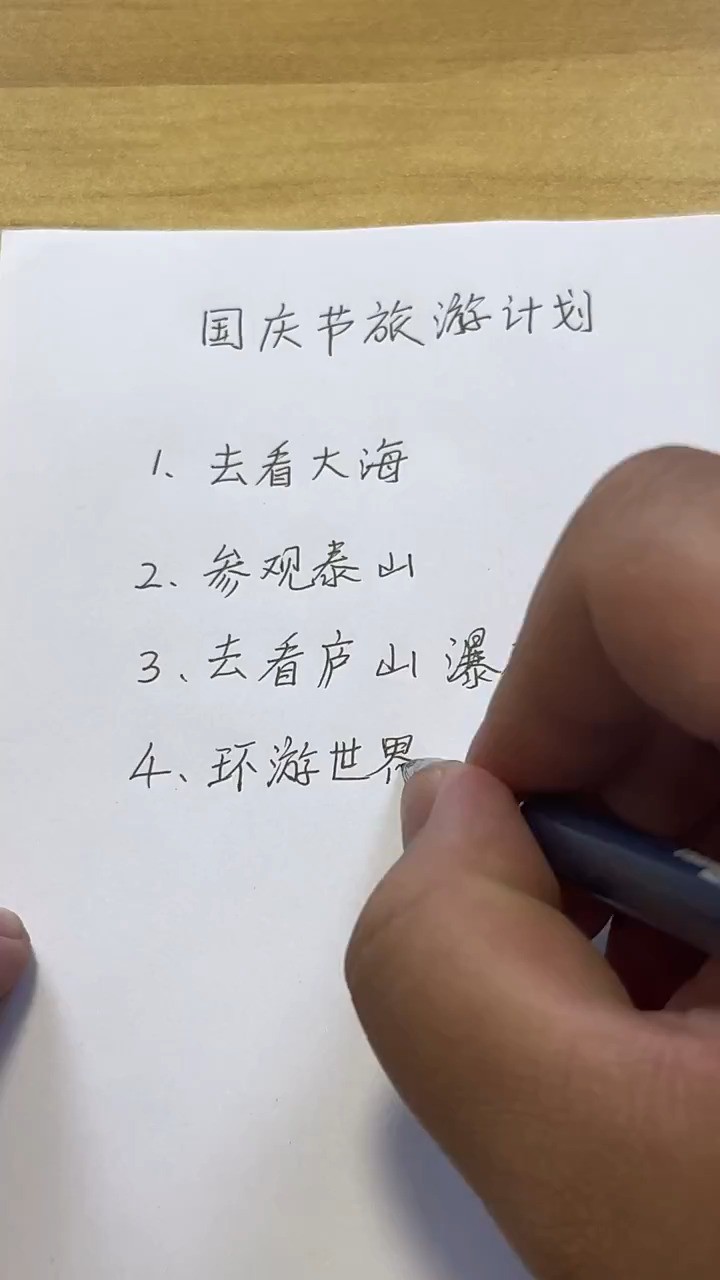 国庆节旅游计划
1、去看大海
2、参观泰山
3、去看庐山瀑
4、环游世界